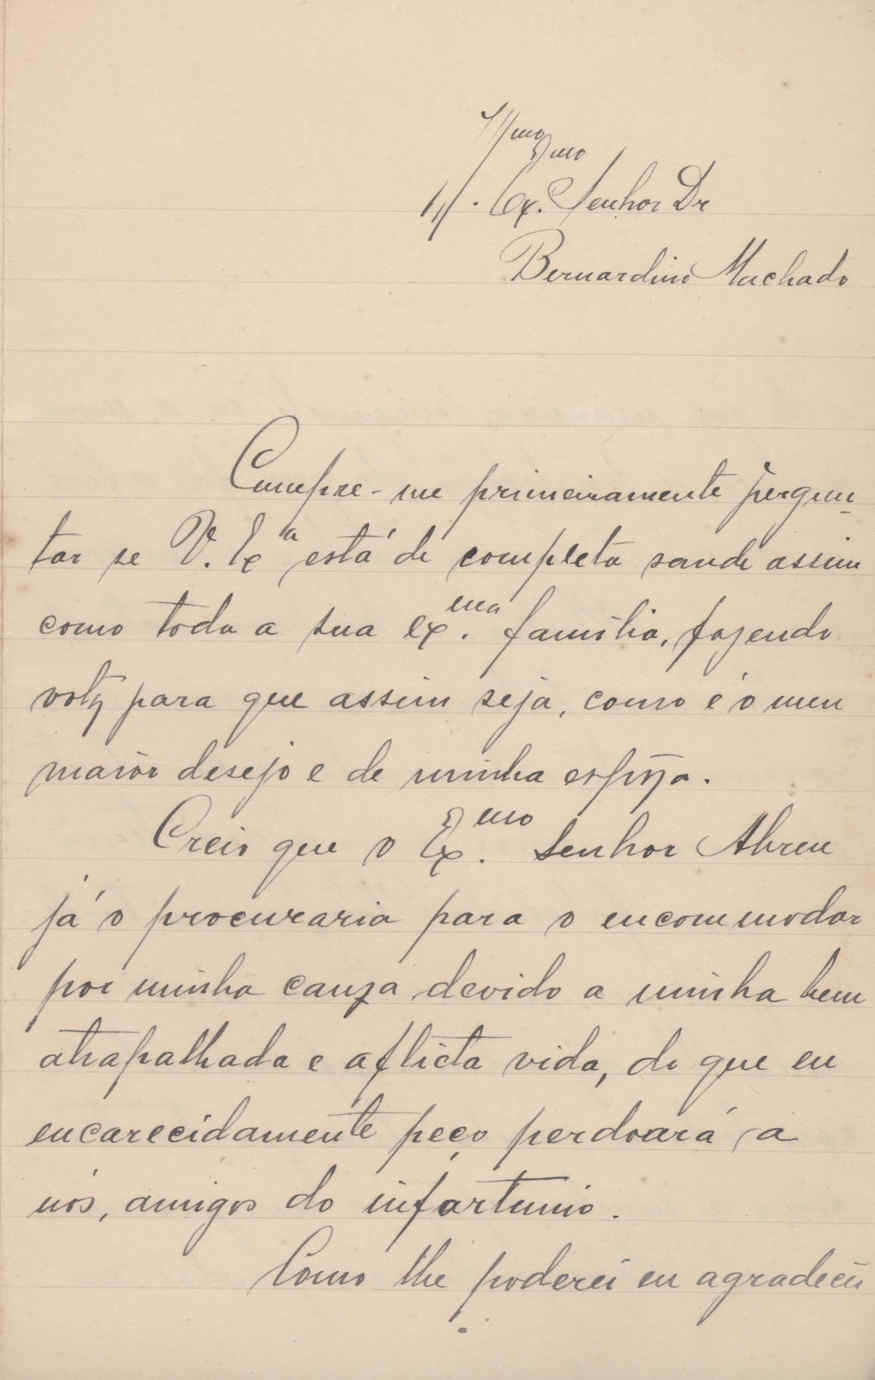 Illmo
Exmo. Senhor Dr
Bernardino Machado
Cumpre-me primeiramente pergun-
tar se V. Exa está de completa saude assim
como toda a sua exma. familia, fazendo
votos para que assim seja, como é o meu
maior desejo e de minha espoza.
Creio que o Exmo. Senhor Abreu
já o procuraria para o encommodar
por minha cauza devido a minha bem
atrapalhada e aflicta vida, do que eu
encarecidamente peço perdoará a
nós, amigos do infortunio.
Como lhe poderei eu agradecer